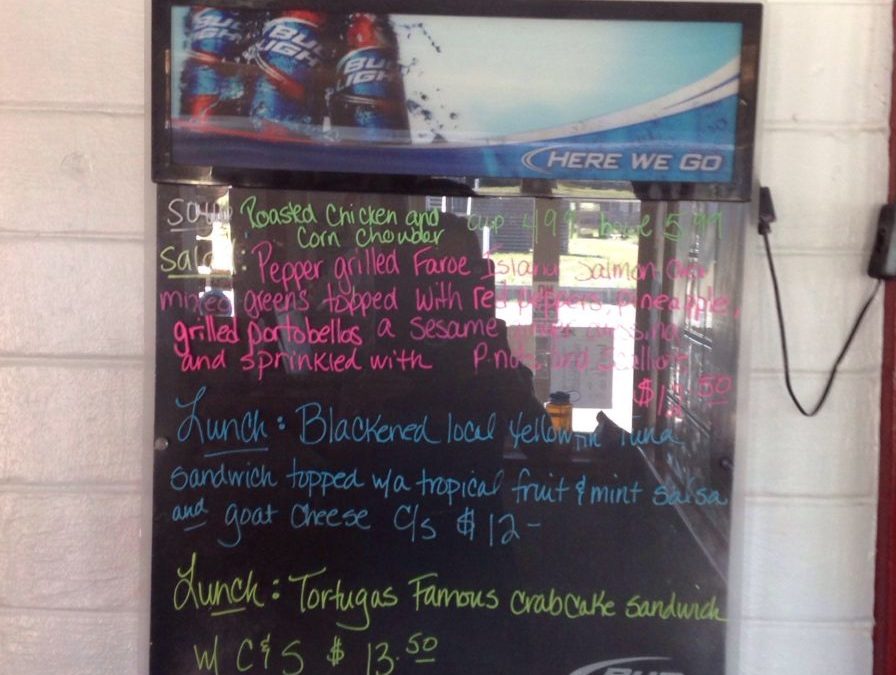 BUD LIGHT BUD LIGHT BUD LIGHT
HERE WE GO
Soup Roasted Chicken and cup 4.99 bowl 5.99
Corn Chowder
Salad: Pepper grilled Faroe Island Salmon over
mixed greens topped with red peppers, pineapple,
grilled portobellos a sesame ginger dressing
and sprinkled with P-nuts and Scallions
$12.50
Lunch: Blackened local Yellowfin Tuna
sandwich topped w/a tropical fruit & mint salsa
and goat cheese C/s $12-
Lunch: Tortugas Famous crabcake sandwich
w/ C&S $13.50
BUD